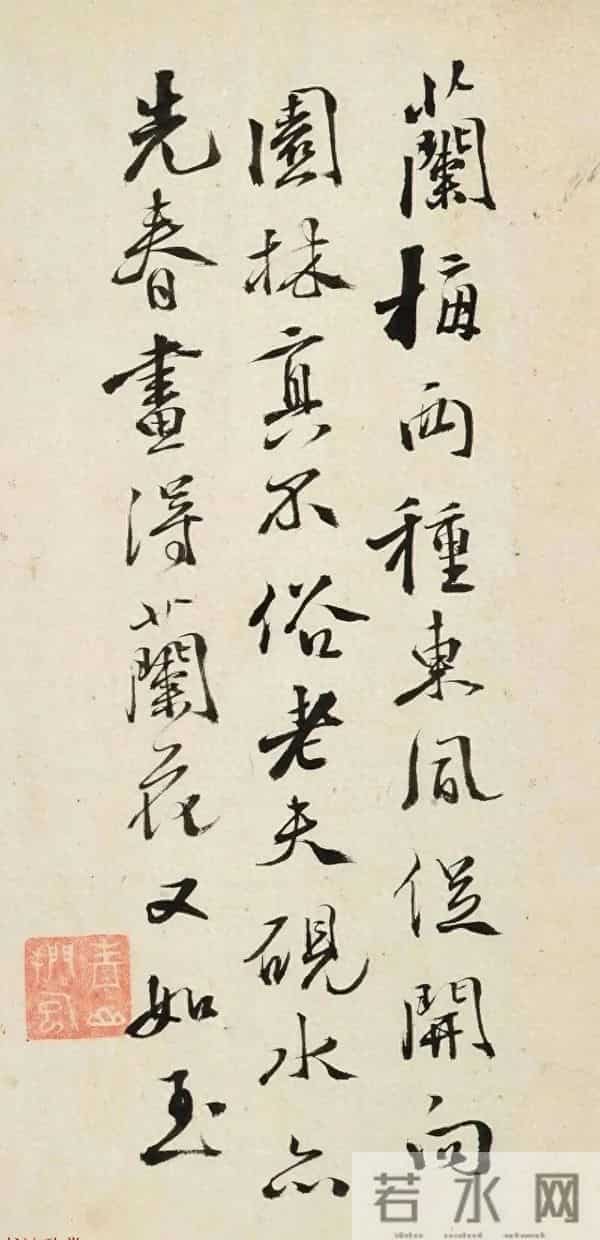 蘭梅兩種東風促開向
園林真不俗老夫硯水亦
先春畫得蘭花又如玉
青山
捫虱
若水网